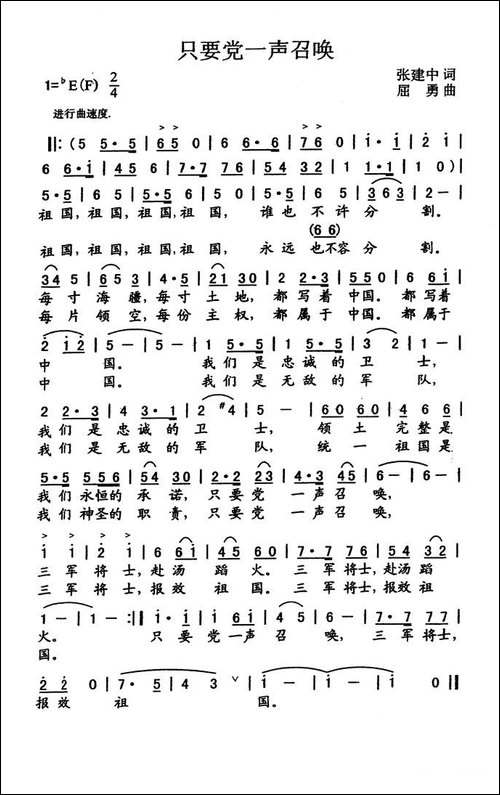 只要党一声召唤
1=♭E(F) 2/4
张建中 词
屈 勇 曲
进行曲速度.
‖:(5 5·5 | 65 0 | 6 6·6 | 76 0 | i · i | 2 i |
6 6·i | 45 6 | 7·7 76 | 54 32 | 1 1·1 | 1 0)|
5·5 6 5 | 5·5 6 5 | 0 5·5 | 6 5 | 363 | 2 - |
祖国,祖国,祖国,祖国, 谁也 不许 分 割。
(66)
祖国,祖国,祖国,祖国, 永远 也不容 分 割。
34 5 | 65 3 | 4·5 | 21 30 | 2 2·3 | 550 6 6i |
每寸海疆,每寸土地,都写着中国。都写着
每片领空,每份主权,都属于中国。都属于
2 i2 | 5 - | 5 - | 1 5·5 | 1 5·5 | 3 2 | 1 - |
中 国。 我们是忠诚的卫 士,
中 国。 我们是无敌的军 队,
2 2·3 | 4 3·1 | 2 #4 | 5 - | 60 60 | 4 6 |
我们是忠诚的卫 士, 领土完整是
我们是无敌的军 队, 统一祖国是
5·5 556 | 54 30 | 2·2 23 | 45 | 6 - | 6 - |
我们永恒的承诺,只要党一声召 唤,
我们神圣的职责,只要党一声召 唤,
i i | 2 i | 6 6i | 45 60 | 7·7 76 | 54 32 |
三军将士,赴汤蹈火。三军将士,赴汤蹈
三军将士,报效祖国。三军将士,报效祖
1 - | 1 - :‖ i · i | i 6i | 45 | 6 - | 7·7 77 |
火。 只要党一声召 唤, 三军将士,
国。
2 2 0 | 7· 5 | 4 3 ∨ | i - | i - | i 0 ‖
报效 祖 国。